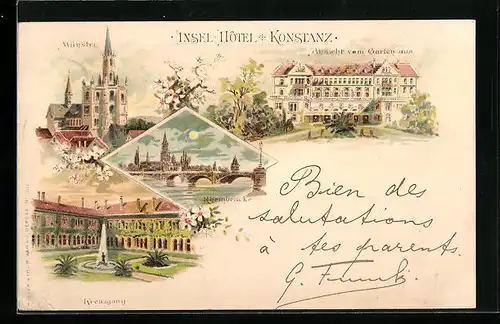 · INSEL-HÔTEL ⁜ KONSTANZ ·
Münster
Ansicht vom Garten aus
Rheinbrücke
Bien des
salutations
à tes parents.
Kreuzgang